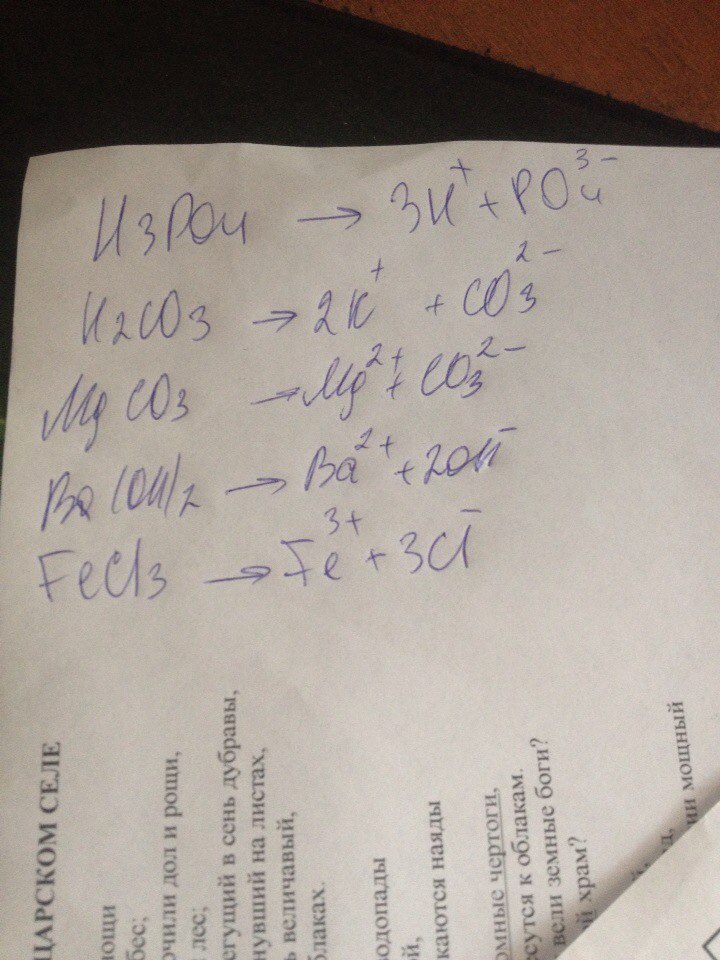 H3PO4 → 3H⁺ + PO4³⁻
H2CO3 → 2H⁺ + CO3²⁻
MgCO3 → Mg²⁺ + CO3²⁻
Ba(OH)2 → Ba²⁺ + 2OH⁻
FeCl3 → Fe³⁺ + 3Cl⁻
ЦАРСКОМ СЕЛЕ
нощи
бес;
очили дол и рощи,
лес;
егущий в сень дубравы,
нувший на листах,
ь величавый,
блаках.
водопады
каются наяды
ой,
омные чертоги,
сутся к облакам.
вели земные боги?
й храм?
ии мощный